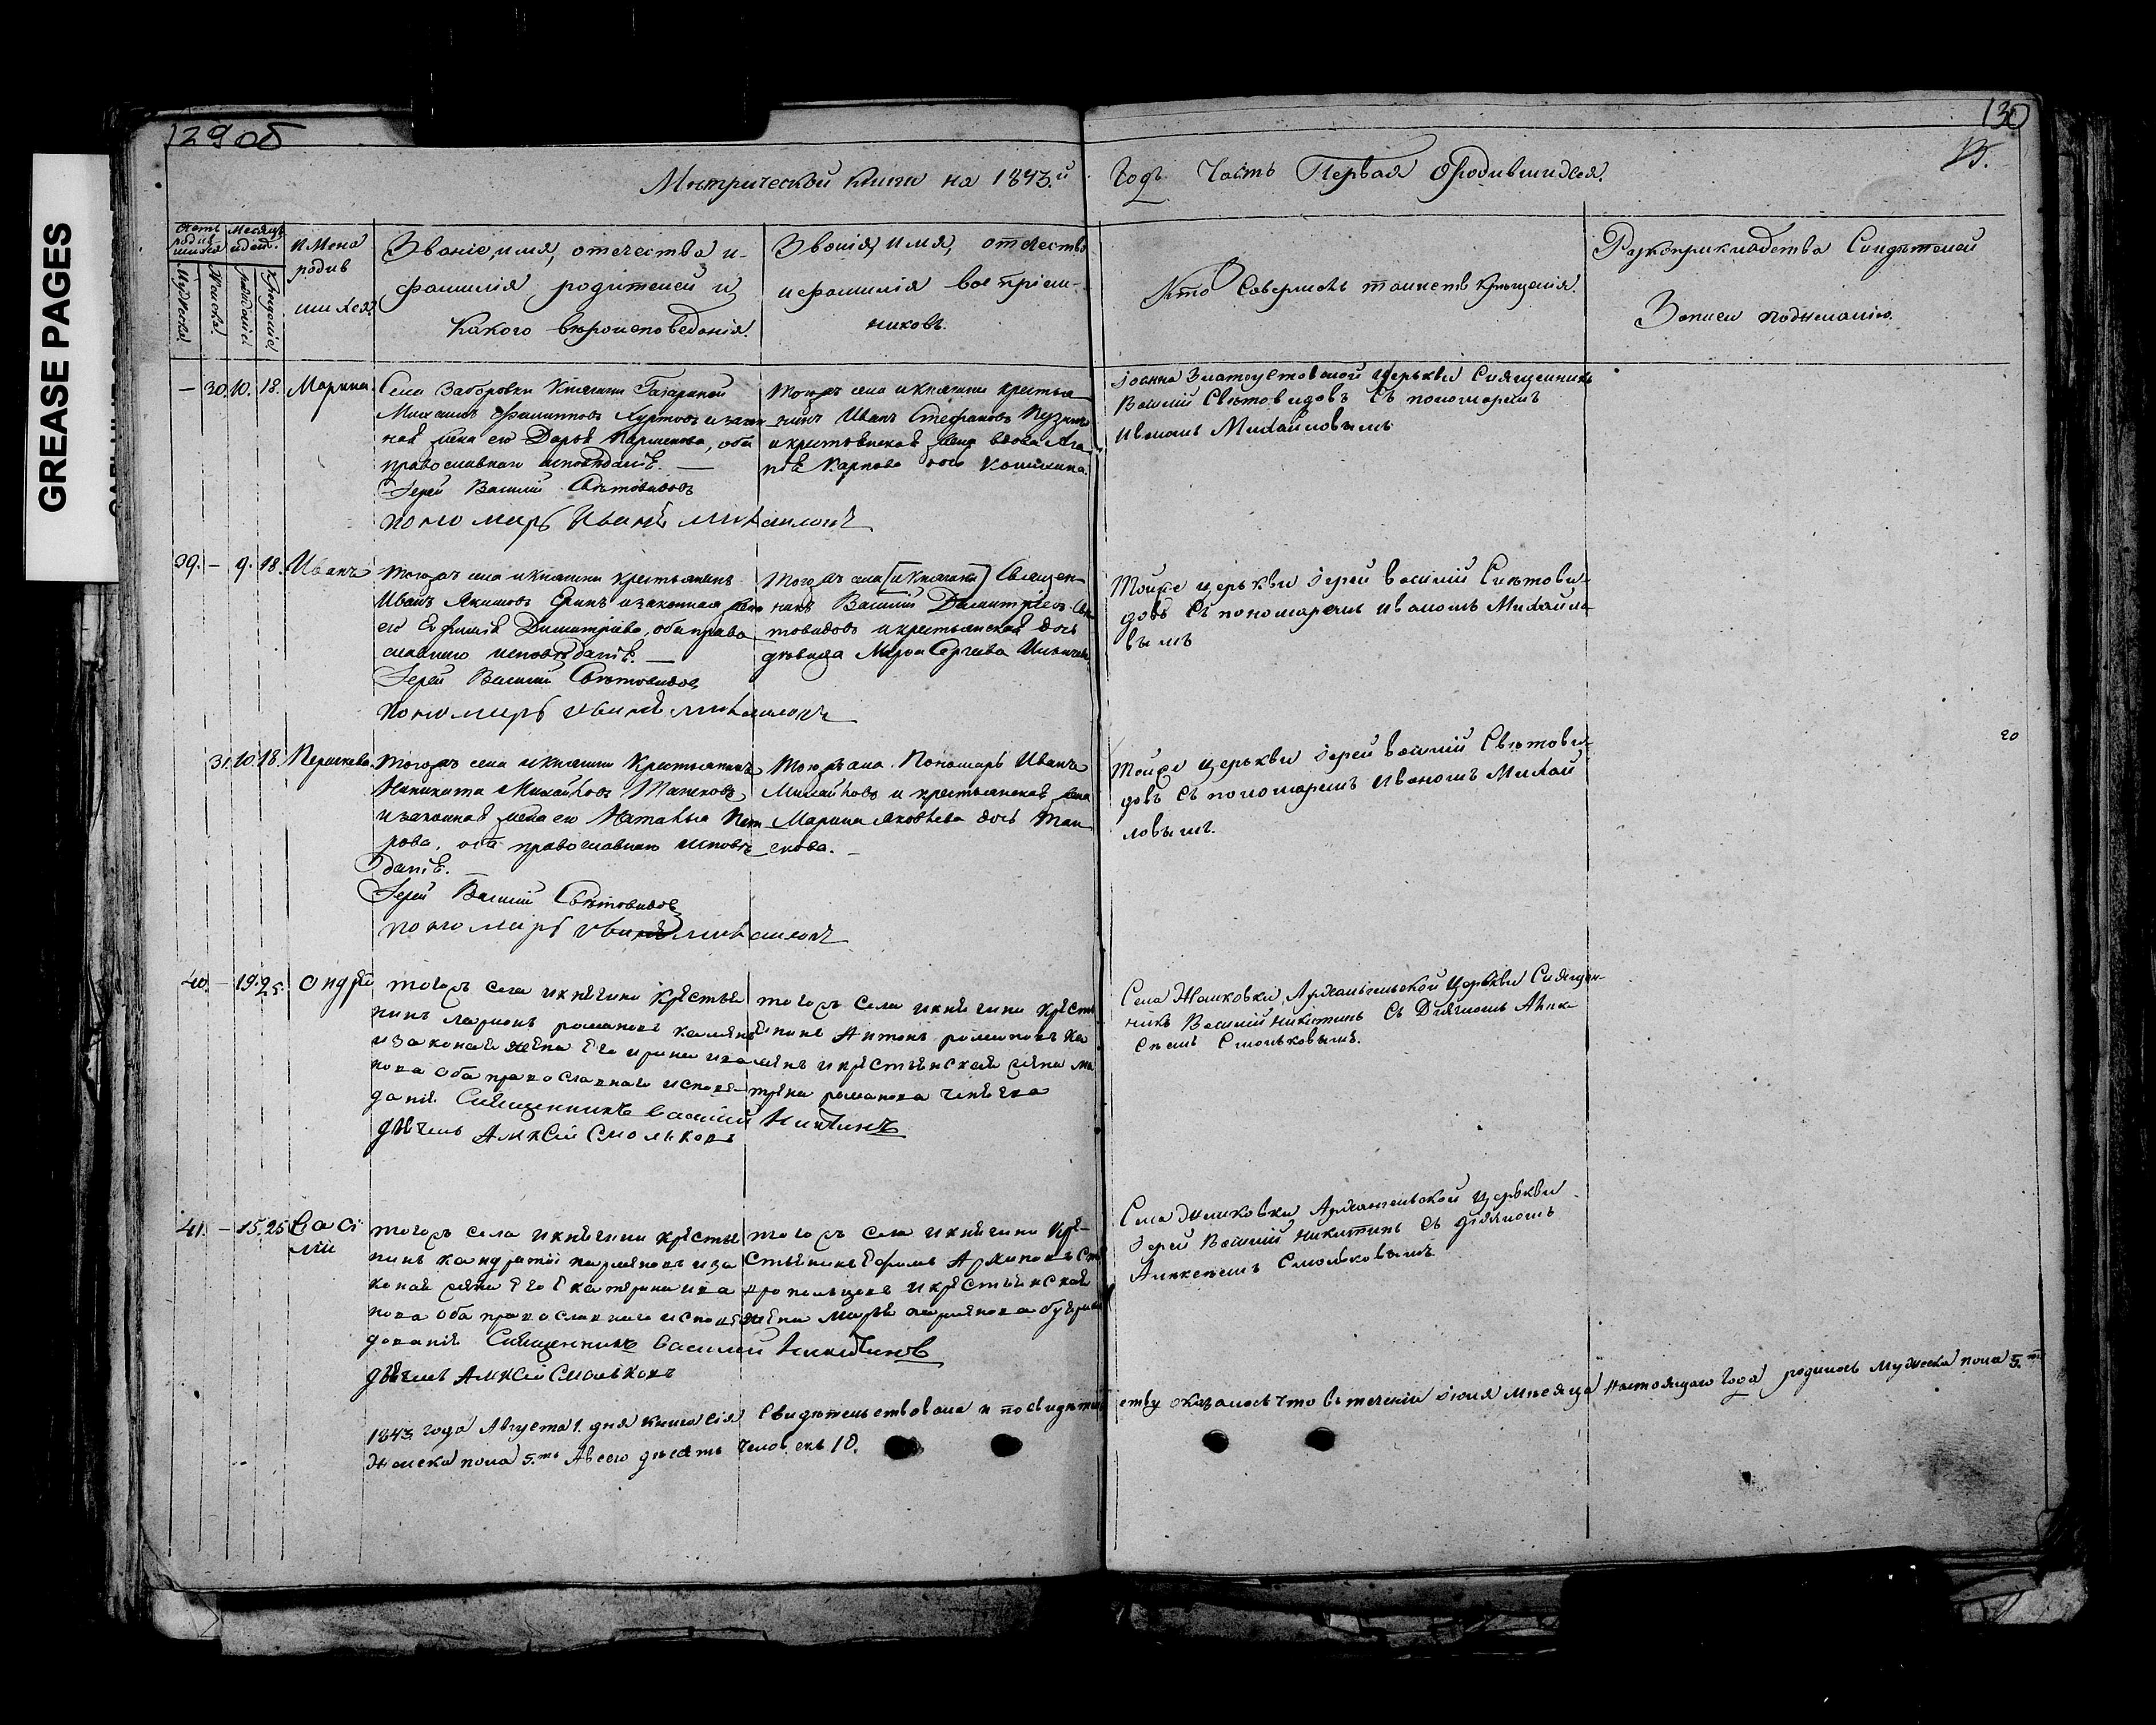 GREASE PAGES
129об
130
Метрической книги на 1843.й
Годъ Часть Первая о родившихся.
Счетъ родив шихся
Месяцъ и день.
Мужеска
Женска
рожденія
Крещенія
Имена
родив
шихся
Званіе, имя, отечества и
фамилія родителей и
какого вероисповеданія.
Званія, имя, отечества
и фамилія воспріем-
никовъ.
Кто Совершалъ таинств крещенія.
Рукоприкладства Свидетелей
Записи по желанію.
— 30. 10. 18. Марина.
Села Заборовки Княгини Гагариной
Михаилъ Филипповъ Хуртовъ и закон
ная жена его Дарья Парменова, оба
православнаго исповеданія. —
Іерей Василій Световидовъ
Пономарь Иванъ Михаиловъ
Тогожъ села и княгини крестья
нинъ Иванъ Стефановъ Пузинъ
и крестьянская жена вдова Ага
пія Карпова
Іоанно Златоустовской церькви Священникъ
Василій Световидовъ Съ пономаремъ
Иваномъ Михайловымъ
39. — 9. 18. Иванъ
Тогожъ села и княгини крестьянинъ
Иванъ Якимовъ Еринъ и законная жена
его Ефимія Димитріева, оба право
славнаго исповеданія. —
Іерей Василій Световидовъ
Пономарь Иванъ Михаиловъ
Тогожъ села [и княгини] Священ-
никъ Василій Димитріевъ Све
товидовъ и крестьянская дочь
девица Мара Сергеева
Тойже церькви Іерей Василій Светови-
довъ Съ пономаремъ Иваномъ Михайло
вымъ
31. 10. 18. Перасковія.
Тогожъ села и княгини Крестьянинъ
Никита Михайловъ Танековъ
и законная жена его Наталья Пет
рова, оба православнаго исповѣ
данія.
Іерей Василій Световидовъ
Пономарь Иванъ Михаиловъ
Тогожъ села Пономарь Иванъ
Михайловъ и крестьянская жена
Марина Яковлева дочь Тан
екова. —
Тойже церькви Іерей Василій Светови-
довъ Съ пономаремъ Иваномъ Михай
ловымъ.
20
40. — 19. 25. Андрей
тогожъ села и княгини крестья
нинъ Ларионъ романовъ
и законая жена его ирина ива
нова оба православнаго исповѣ-
данія Священникъ Василій Никитинъ
дьячекъ Алексій Смольковъ
тогожъ села и княгини кресть
янинъ Антонъ романовъ ка
и крестьянская жена ма
трена романова
Села Жемковки, Архангельской Церькви Священ-
никъ Василій Никитинъ Съ Дьячкомъ Алек-
сѣемъ Смольковымъ.
41. — 15. 25. Васи
лій
тогожъ села и княгини кресьтя
нинъ кандратій парменовъ и за
коная жена его Екатерина ива
нова оба православнаго исповѣ
дованія Священникъ Василій Никитинъ
дьячекъ Алексій Смольковъ
тогожъ села и княгини кре-
стьянинъ Ефимъ Архиповъ
и крестьянская
жена Марья парменова
Села Жемковки Архангельской Церькви
Іерей Василій Никитинъ Съ дьячкомъ
Алексѣемъ Смольковымъ
1843 года Августа 1. дня книга сія Свидѣтельствована и по свидѣтель ству оказалось что въ теченіи Іюля мѣсяца настоящаго года родилось мужеска пола 5.ть
Женска пола 5.ть А всего дѣсять человѣкъ 10.